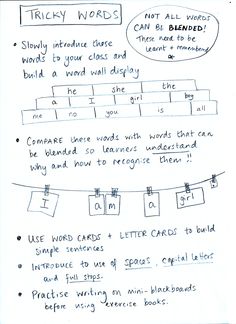 TRICKY WORDS
NOT ALL WORDS
CAN BE BLENDED!
These need to be
learnt + remembered
• Slowly introduce these
words to your class and
build a word wall display
he she the
a I girl boy
me no you is all
• COMPARE these words with words that can
be blended so learners understand
why and how to recognise them !!
I a m a girl
• USE WORD CARDS + LETTER CARDS to build
simple sentences
• INTRODUCE to use of spaces, capital letters
and full stops.
• Practise writing on mini-blackboards
before using exercise books.